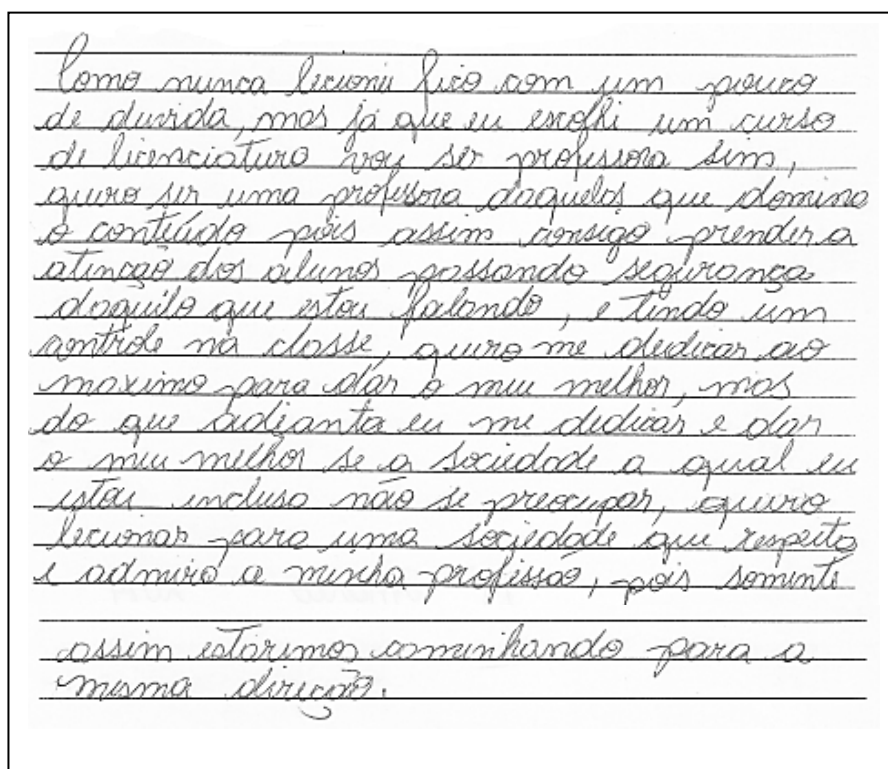 Como nunca lecionei fico com um pouco
de duvida, mas já que eu escolhi um curso
de licenciatura vou ser professora sim,
quero ser uma professora daquelas que domina
o conteúdo pois assim consigo prender a
atenção dos alunos passando segurança
daquilo que estou falando, e tendo um
controle na classe, quero me dedicar ao
maximo para dar o meu melhor, mas
do que adianta eu me dedicar e dar
o meu melhor se a sociedade a qual eu
estou inclusa não se preocupar, quero
lecionar para uma sociedade que respeita
e admira a minha profissão, pois somente
assim estaremos caminhando para a
mesma direção.